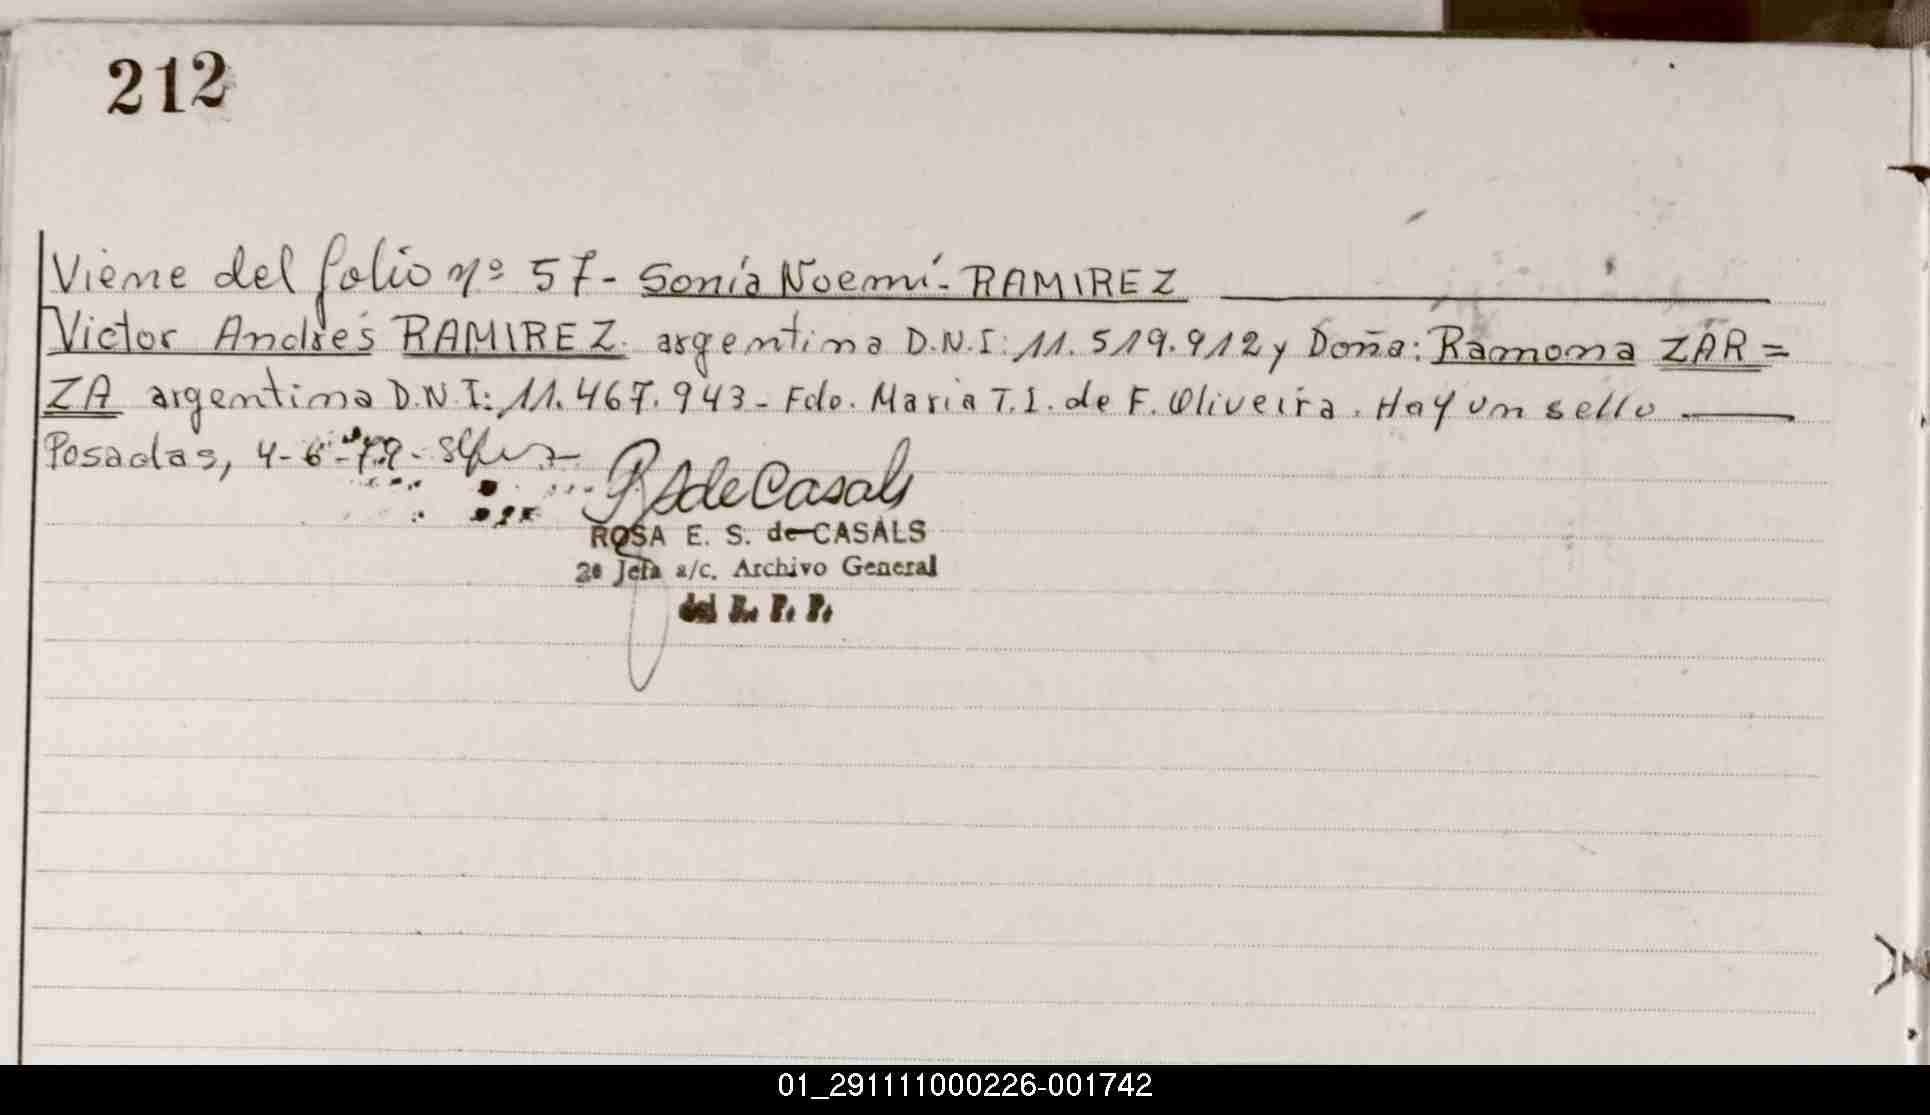 212
Viene del folio nº 57- Sonia Noemí- RAMIREZ
Victor Andrés RAMIREZ. argentina D.N.I: 11.519.912 y Doña: Ramona ZAR=
ZA argentina D.N.I: 11.467.943- Fdo. Maria T.I. de F. Oliveira. Hay un sello
Posadas, 4-6-79-
RS de Casals
ROSA E. S. de CASALS
2ª Jefa a/c. Archivo General
del R. P. P.
01_291111000226-001742